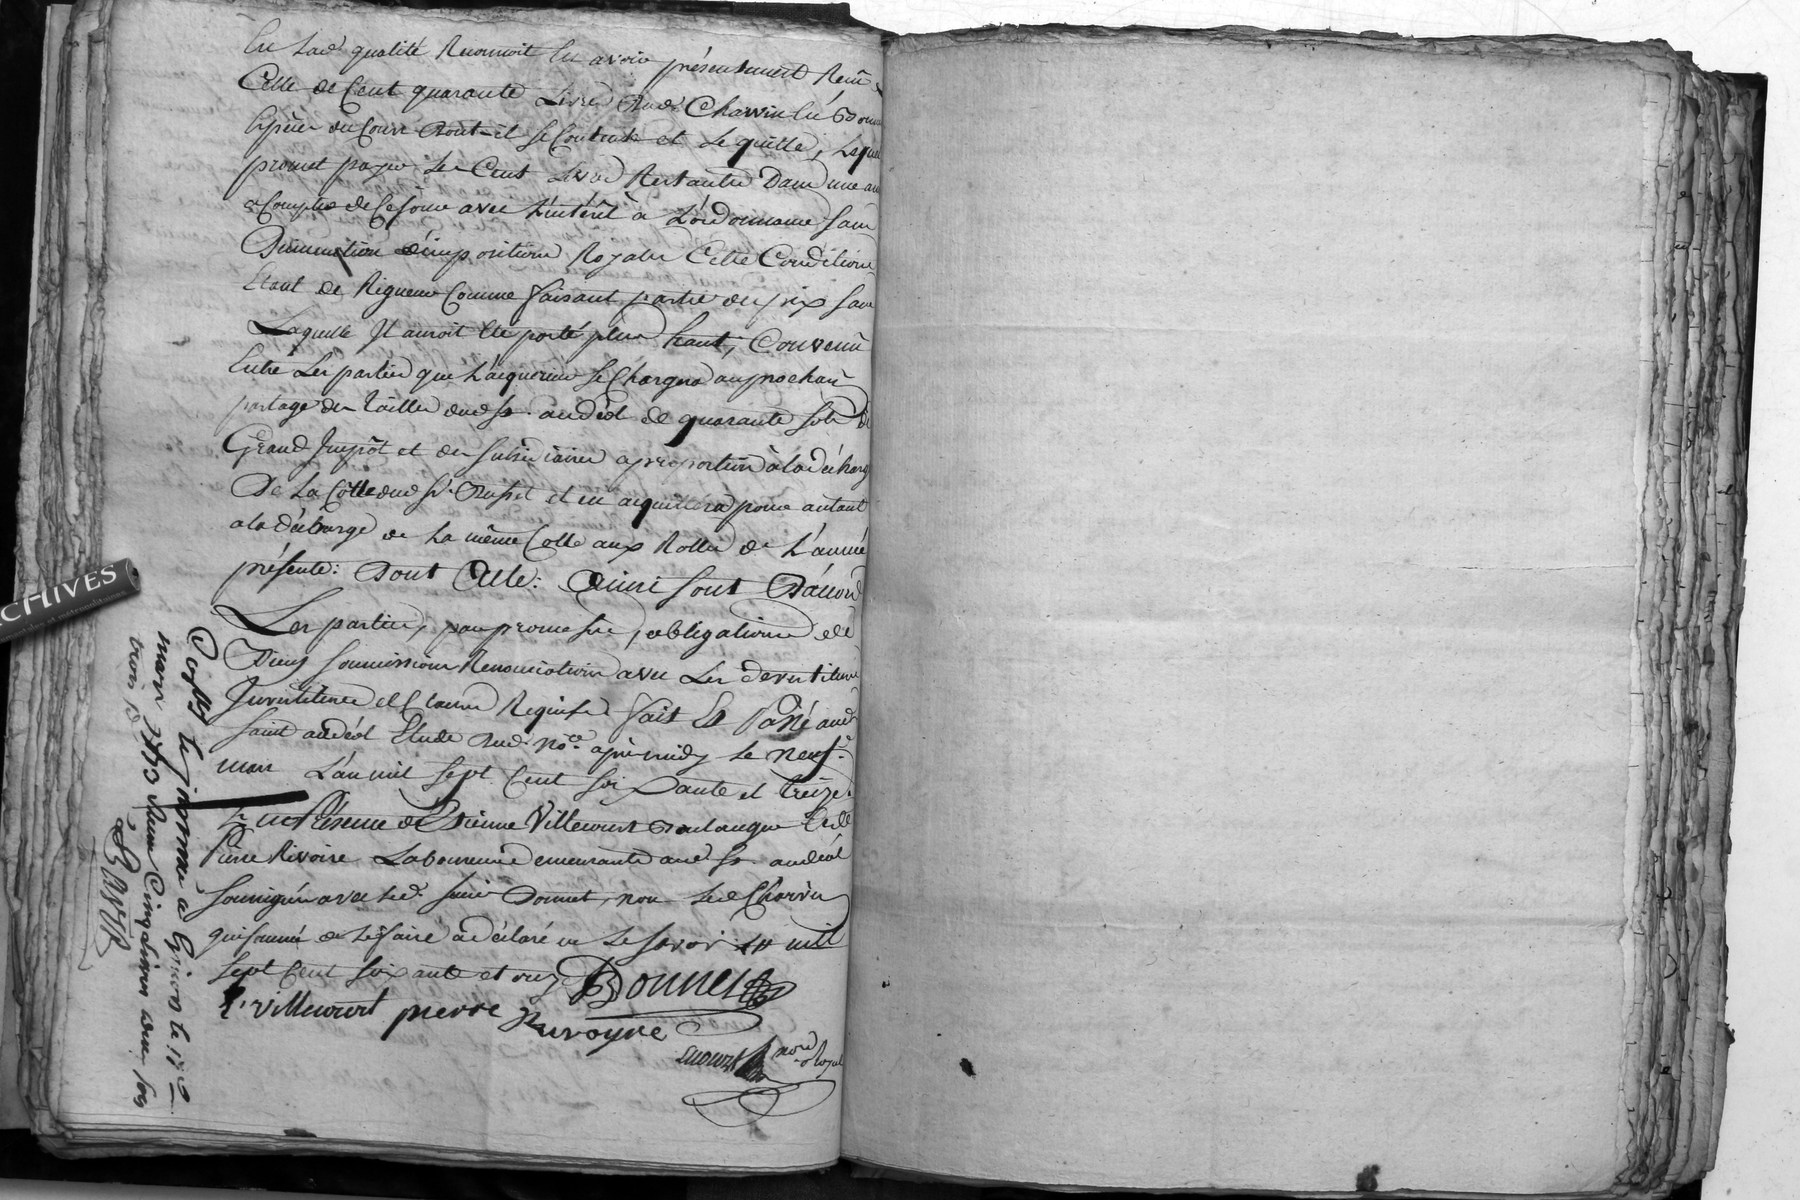 En lad. qualité Reconnoit En avoir présentement Reçu
Celle de Cent quarante Livres dud. Charvin En Bonnes
Espèces du Cours dont il se Contente et Le quitte, Lequel
promet payer Les Cent Livres Restantes Dans une année
a Compter de Ce jour avec L'intérêt à L'ordonnance sans
Diminution d'impositions Royales Cette Condition
Etant de Rigueur Comme faisant partie du prix sans
Laquelle Il auroit Eté porté plus haut, Convenu
Entre Les parties que L'acquereur se Chargera au prochain
partage des tailles dud. St. andéol de quarante sols de
Grand Impôt et des subsidiaires a proportion à la décharge
De La Cotte dud. Sr. et en acquittera pour autant
a la décharge de La même Cotte aux Rolles de L'année
présente: Dont Acte: Ainsi sont D'accord
Les parties, par promesses, obligations de
Biens soumissions Renonciations avec Les
et Clauses Requises fait Et Passé aud.
saint andéol Etude dud. No.re après midy Le neuf
mars L'an mil sept Cent soixante et treize.
En Présence d'Etienne Villecourt Boulanger Et de
Pierre Rivoire Laboureur demeurants aud. St. andéol
soussignés avec led. sieur Bonnet, non led. Charvin
qui sommé de Le faire a déclaré ne Le savoir mil
sept Cent soixante et onze
Bonnet
E. villecourt pierre Rivoyre
no.re Royal
Con.lé
mars 1773 Reçu Cinq livres douze sols
trois d.